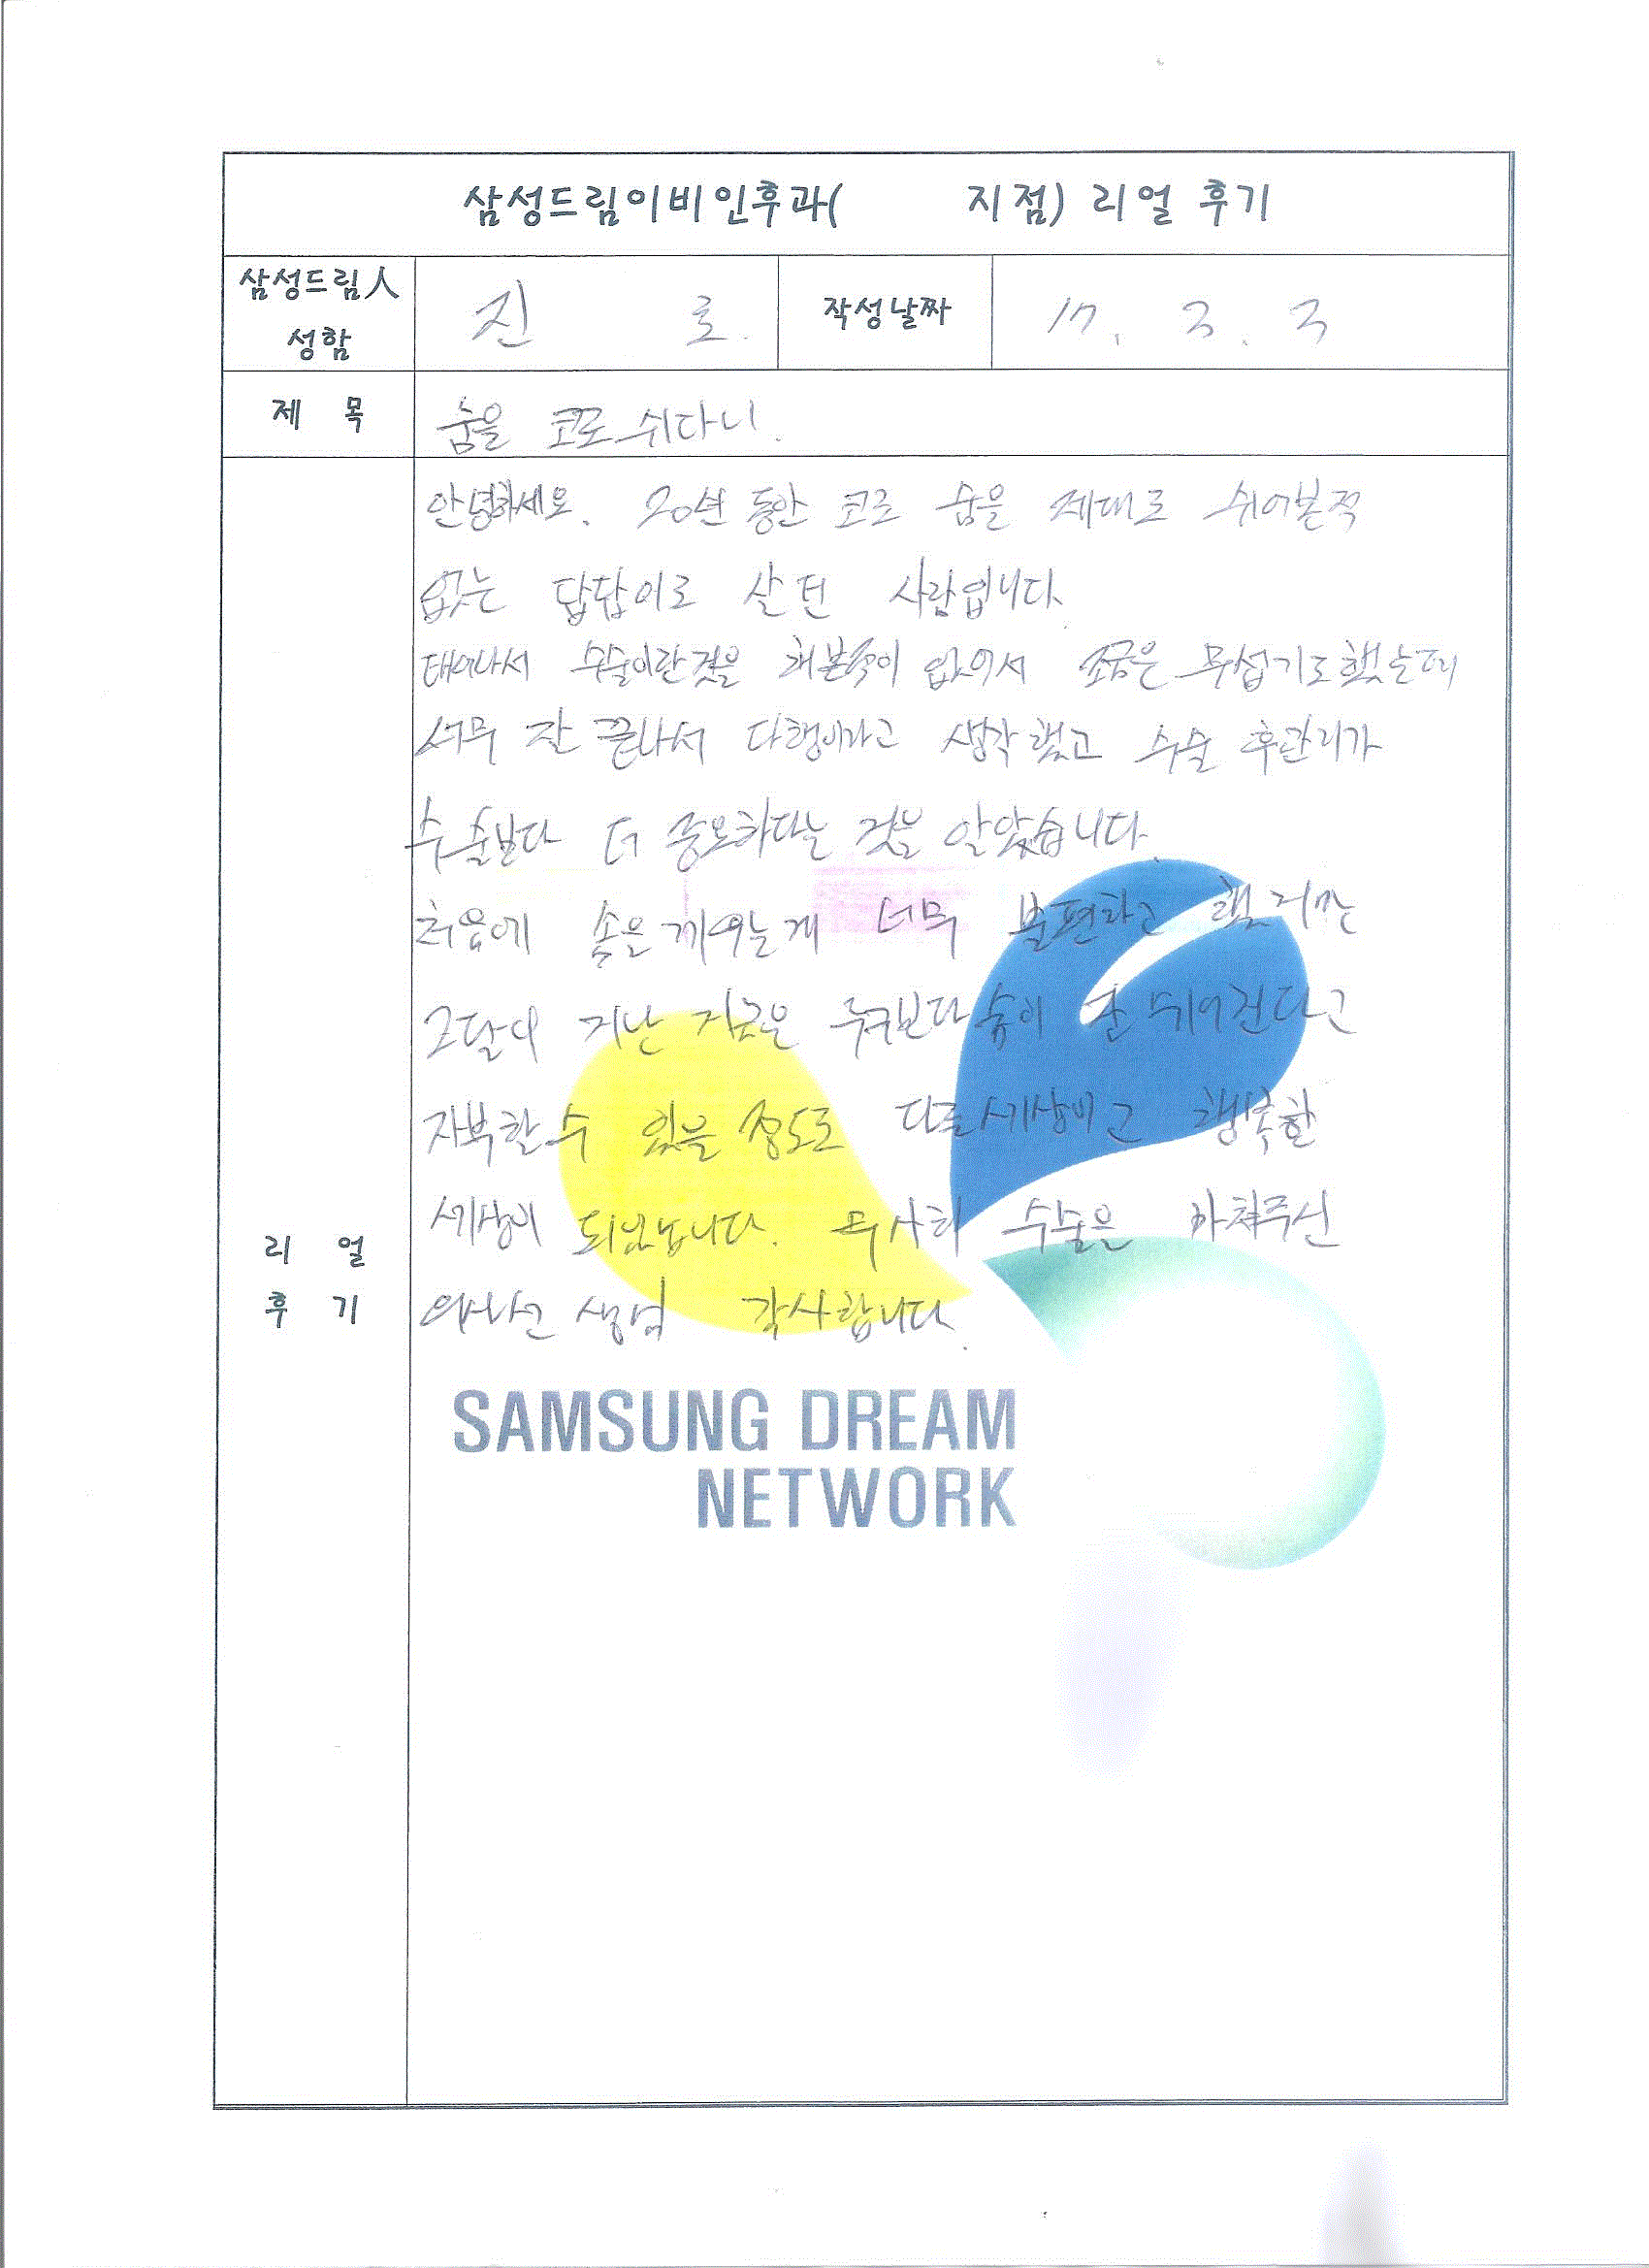 삼성드림이비인후과( 지점) 리얼 후기
삼성드림人 성함
진 호.
작성날짜
17. 3. 3
제 목
숨을 코로 쉬다니.
리 얼 후 기
안녕하세요. 20년 동안 코로 숨을 제대로 쉬어본적
없는 답답이로 살던 사람입니다.
태어나서 수술이란것을 해본적이 없어서 조금은 무섭기도했는데
너무 잘 끝나서 다행이라고 생각했고 수술 후관리가
수술보다 더 중요하다는 것을 알았습니다.
처음에 솜은 끼우는게 너무 불편하고 했지만
그달이 지난 지금은 누구보다 숨이 잘 쉬어진다고
자부할수 있을 정도로 다른세상이고 행복한
세상이 되었습니다. 무사히 수술은 마쳐주신
의사선생님 감사합니다.
SAMSUNG DREAM
NETWORK